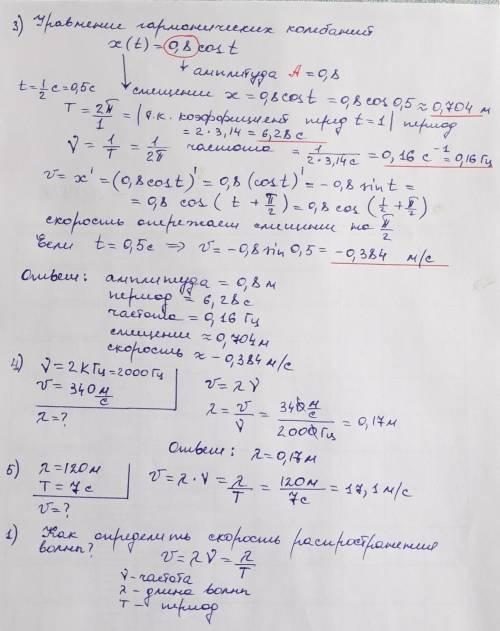 3) Уравнение гармонических колбаний
x(t) = 0,8 cos t
↓ амплитуда A = 0,8
t = 1/2 c = 0,5c ↓ смещении x = 0,8 cos t = 0,8 cos 0,5 ≈ 0,704 м
T = 2π/1 = |т.к. коэффициент перед t = 1| период
= 2 · 3,14 = 6,28 c
ν = 1/T = 1/2π частота = 1/(2·3,14c) = 0,16 c⁻¹ = 0,16 Гц
v = x' = (0,8 cos t)' = 0,8 (cos t)' = -0,8 sin t =
= 0,8 cos (t + π/2) = 0,8 cos (1/2 + π/2)
скорость опережает смещении на π/2
Если t = 0,5c ⇒ v = -0,8 sin 0,5 = -0,384 м/с
Ответ: амплитуда = 0,8 м
период = 6,28 c
частота = 0,16 Гц
смещение ≈ 0,704 м
скорость ≈ -0,384 м/с
4) ν = 2 кГц = 2000 Гц
v = 340 м/с
λ = ?
v = λν
λ = v/ν = 340 м/с / 2000 Гц = 0,17 м
Ответ: λ = 0,17 м
5) λ = 120 м
T = 7 c
v = ?
v = λ · ν = λ/T = 120 м / 7 c = 17,1 м/с
1) Как определить скорость распространения
волны? v = λν = λ/T
ν - частота
λ - длина волны
T - период